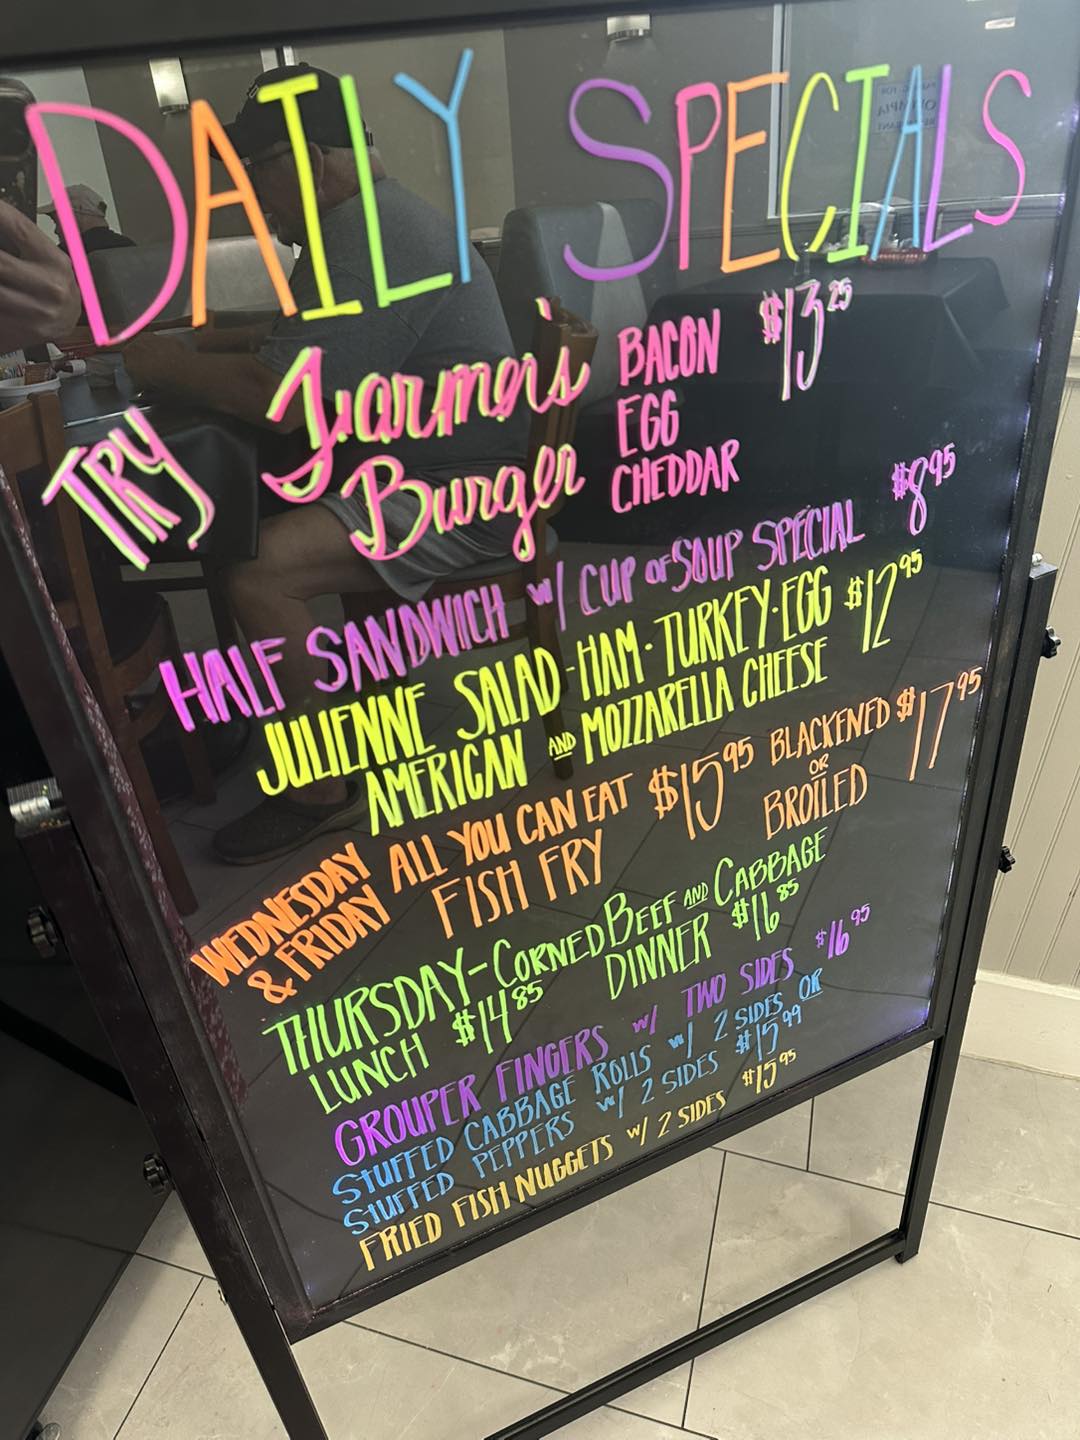 DAILY SPECIALS
TRY Farmer's Burger BACON EGG CHEDDAR $13.25
HALF SANDWICH w/ CUP OF SOUP SPECIAL $8.95
JULIENNE SALAD - HAM · TURKEY · EGG $12.95
AMERICAN AND MOZZARELLA CHEESE
WEDNESDAY & FRIDAY ALL YOU CAN EAT FISH FRY $15.95 BLACKENED OR BROILED $17.95
THURSDAY - CORNED BEEF AND CABBAGE
LUNCH $14.85 DINNER $16.85
GROUPER FINGERS w/ TWO SIDES $16.95
STUFFED CABBAGE ROLLS w/ 2 SIDES OR
STUFFED PEPPERS w/ 2 SIDES $15.99
FRIED FISH NUGGETS w/ 2 SIDES $15.95